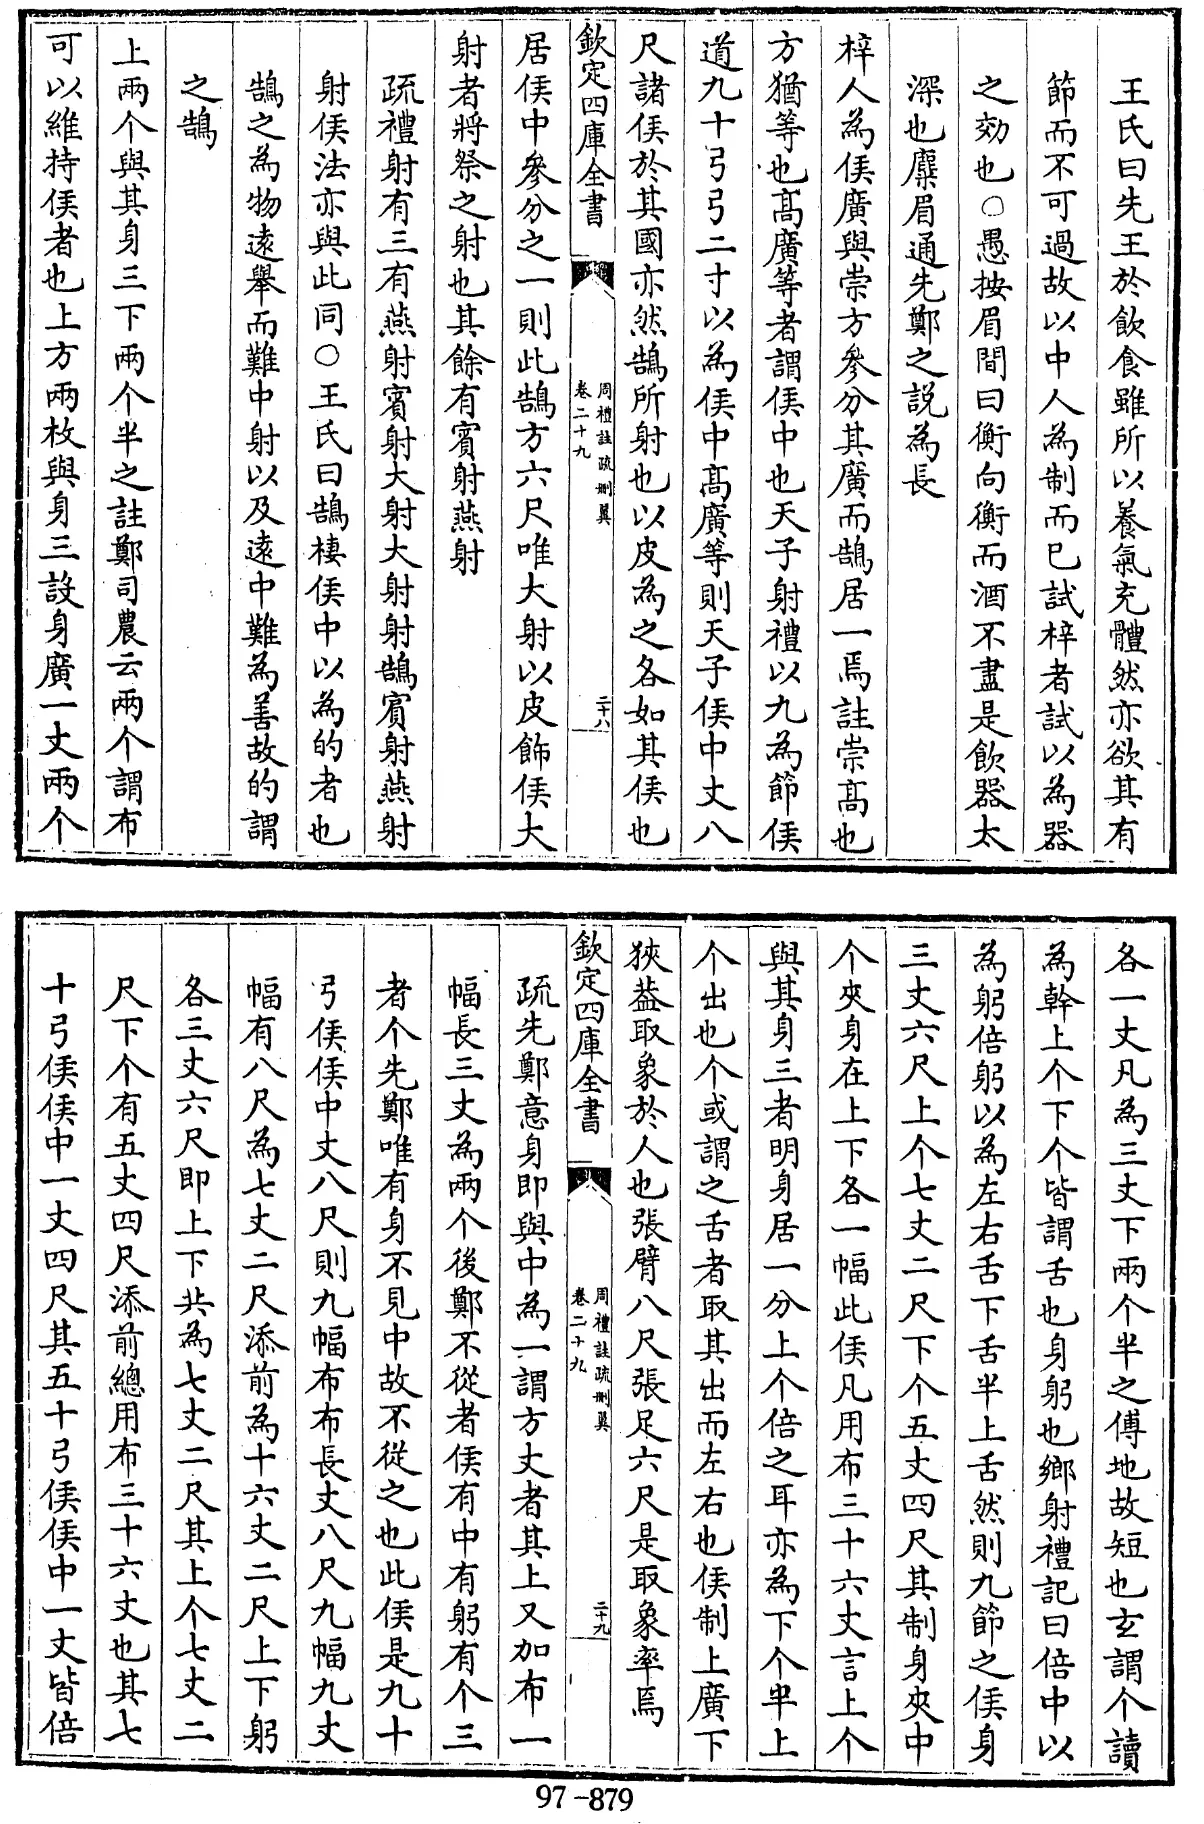 王氏曰先王於飲食雖所以養氣充體然亦欲其有
節而不可過故以中人為制而已試梓者試以為器
之効也○愚按眉間曰衡向衡而酒不盡是飲器太
深也麋眉通先鄭之説為長
梓人為侯廣與崇方參分其廣而鵠居一焉註崇髙也
方猶等也髙廣等者謂侯中也天子射禮以九為節侯
道九十弓弓二寸以為侯中髙廣等則天子侯中丈八
尺諸侯於其國亦然鵠所射也以皮為之各如其侯也
欽定四庫全書
周禮註疏刪翼
卷二十九
二十八
居侯中參分之一則此鵠方六尺唯大射以皮飾侯大
射者將祭之射也其餘有賓射燕射
疏禮射有三有燕射賓射大射大射射鵠賓射燕射
射侯法亦與此同○王氏曰鵠棲侯中以為的者也
鵠之為物遠舉而難中射以及遠中難為善故的謂
之鵠
上兩个與其身三下兩个半之註鄭司農云兩个謂布
可以維持侯者也上方兩枚與身三設身廣一丈兩个
各一丈凡為三丈下兩个半之傅地故短也玄謂个讀
為幹上个下个皆謂舌也身躬也鄉射禮記曰倍中以
為躬倍躬以為左右舌下舌半上舌然則九節之侯身
三丈六尺上个七丈二尺下个五丈四尺其制身夾中
个夾身在上下各一幅此侯凡用布三十六丈言上个
與其身三者明身居一分上个倍之耳亦為下个半上
个出也个或謂之舌者取其出而左右也侯制上廣下
狹葢取象於人也張臂八尺張足六尺是取象率焉
欽定四庫全書
周禮註疏刪翼
卷二十九
二十九
疏先鄭意身即與中為一謂方丈者其上又加布一
幅長三丈為兩个後鄭不從者侯有中有躬有个三
者个先鄭唯有身不見中故不從之也此侯是九十
弓侯侯中丈八尺則九幅布布長丈八尺九幅九丈
幅有八尺為七丈二尺添前為十六丈二尺上下躬
各三丈六尺即上下共為七丈二尺其上个七丈二
尺下个有五丈四尺添前總用布三十六丈也其七
十弓侯侯中一丈四尺其五十弓侯侯中一丈皆倍
97-879